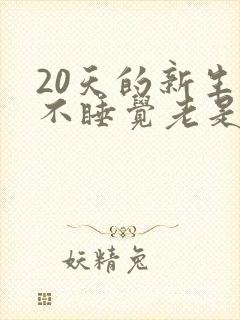 20天的新生
不睡覺老是
妖精兔